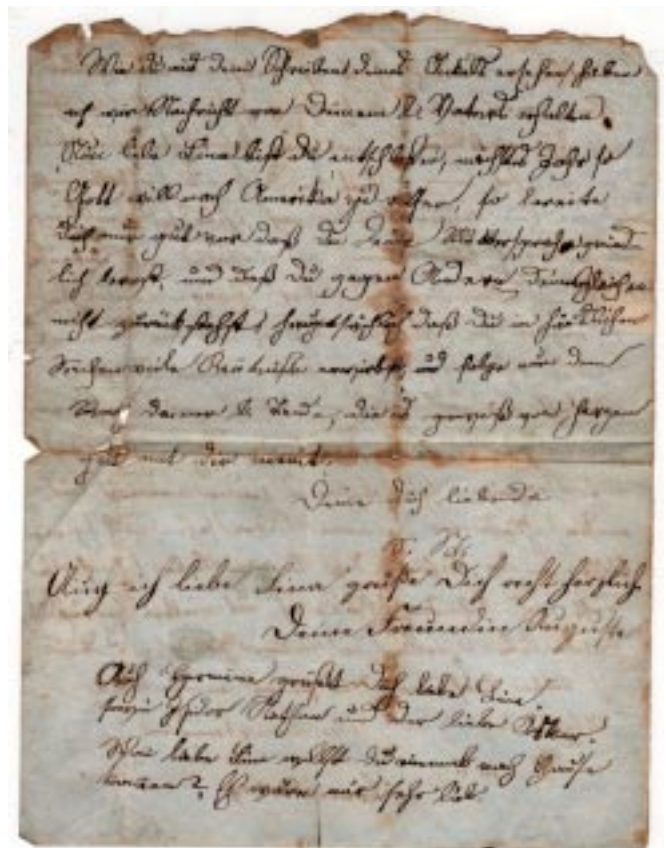 Wie du aus dem Schreiben deines Onkels ersehen, haben
wir Nachricht von Deinem l. Vater erhalten.
Nun liebe Lina bist du entschlossen, nächstes Jahr so
Gott will nach Amerika zu gehen, so bereite
Dich nur gut vor daß du Deine
lich lernst, und daß Du gegen Andern Deinesgleichen
nicht zurückstehst, hauptsächlich daß Du in häuslichen
Sachen viele Kentniße erwirbst, und folge nur dem
Rath deiner l. die es gewiß von Herzen
gut mit dir meint.
Deine Dich liebende
Auch ich liebe Lina grüße Dich recht herzlich
Deine Freundin Auguste
Auch Hermine grüßt Dich liebe Line,
und der liebe
liebe Line willst du einmal nach Hause
kommen? Es wäre mir sehr lieb.